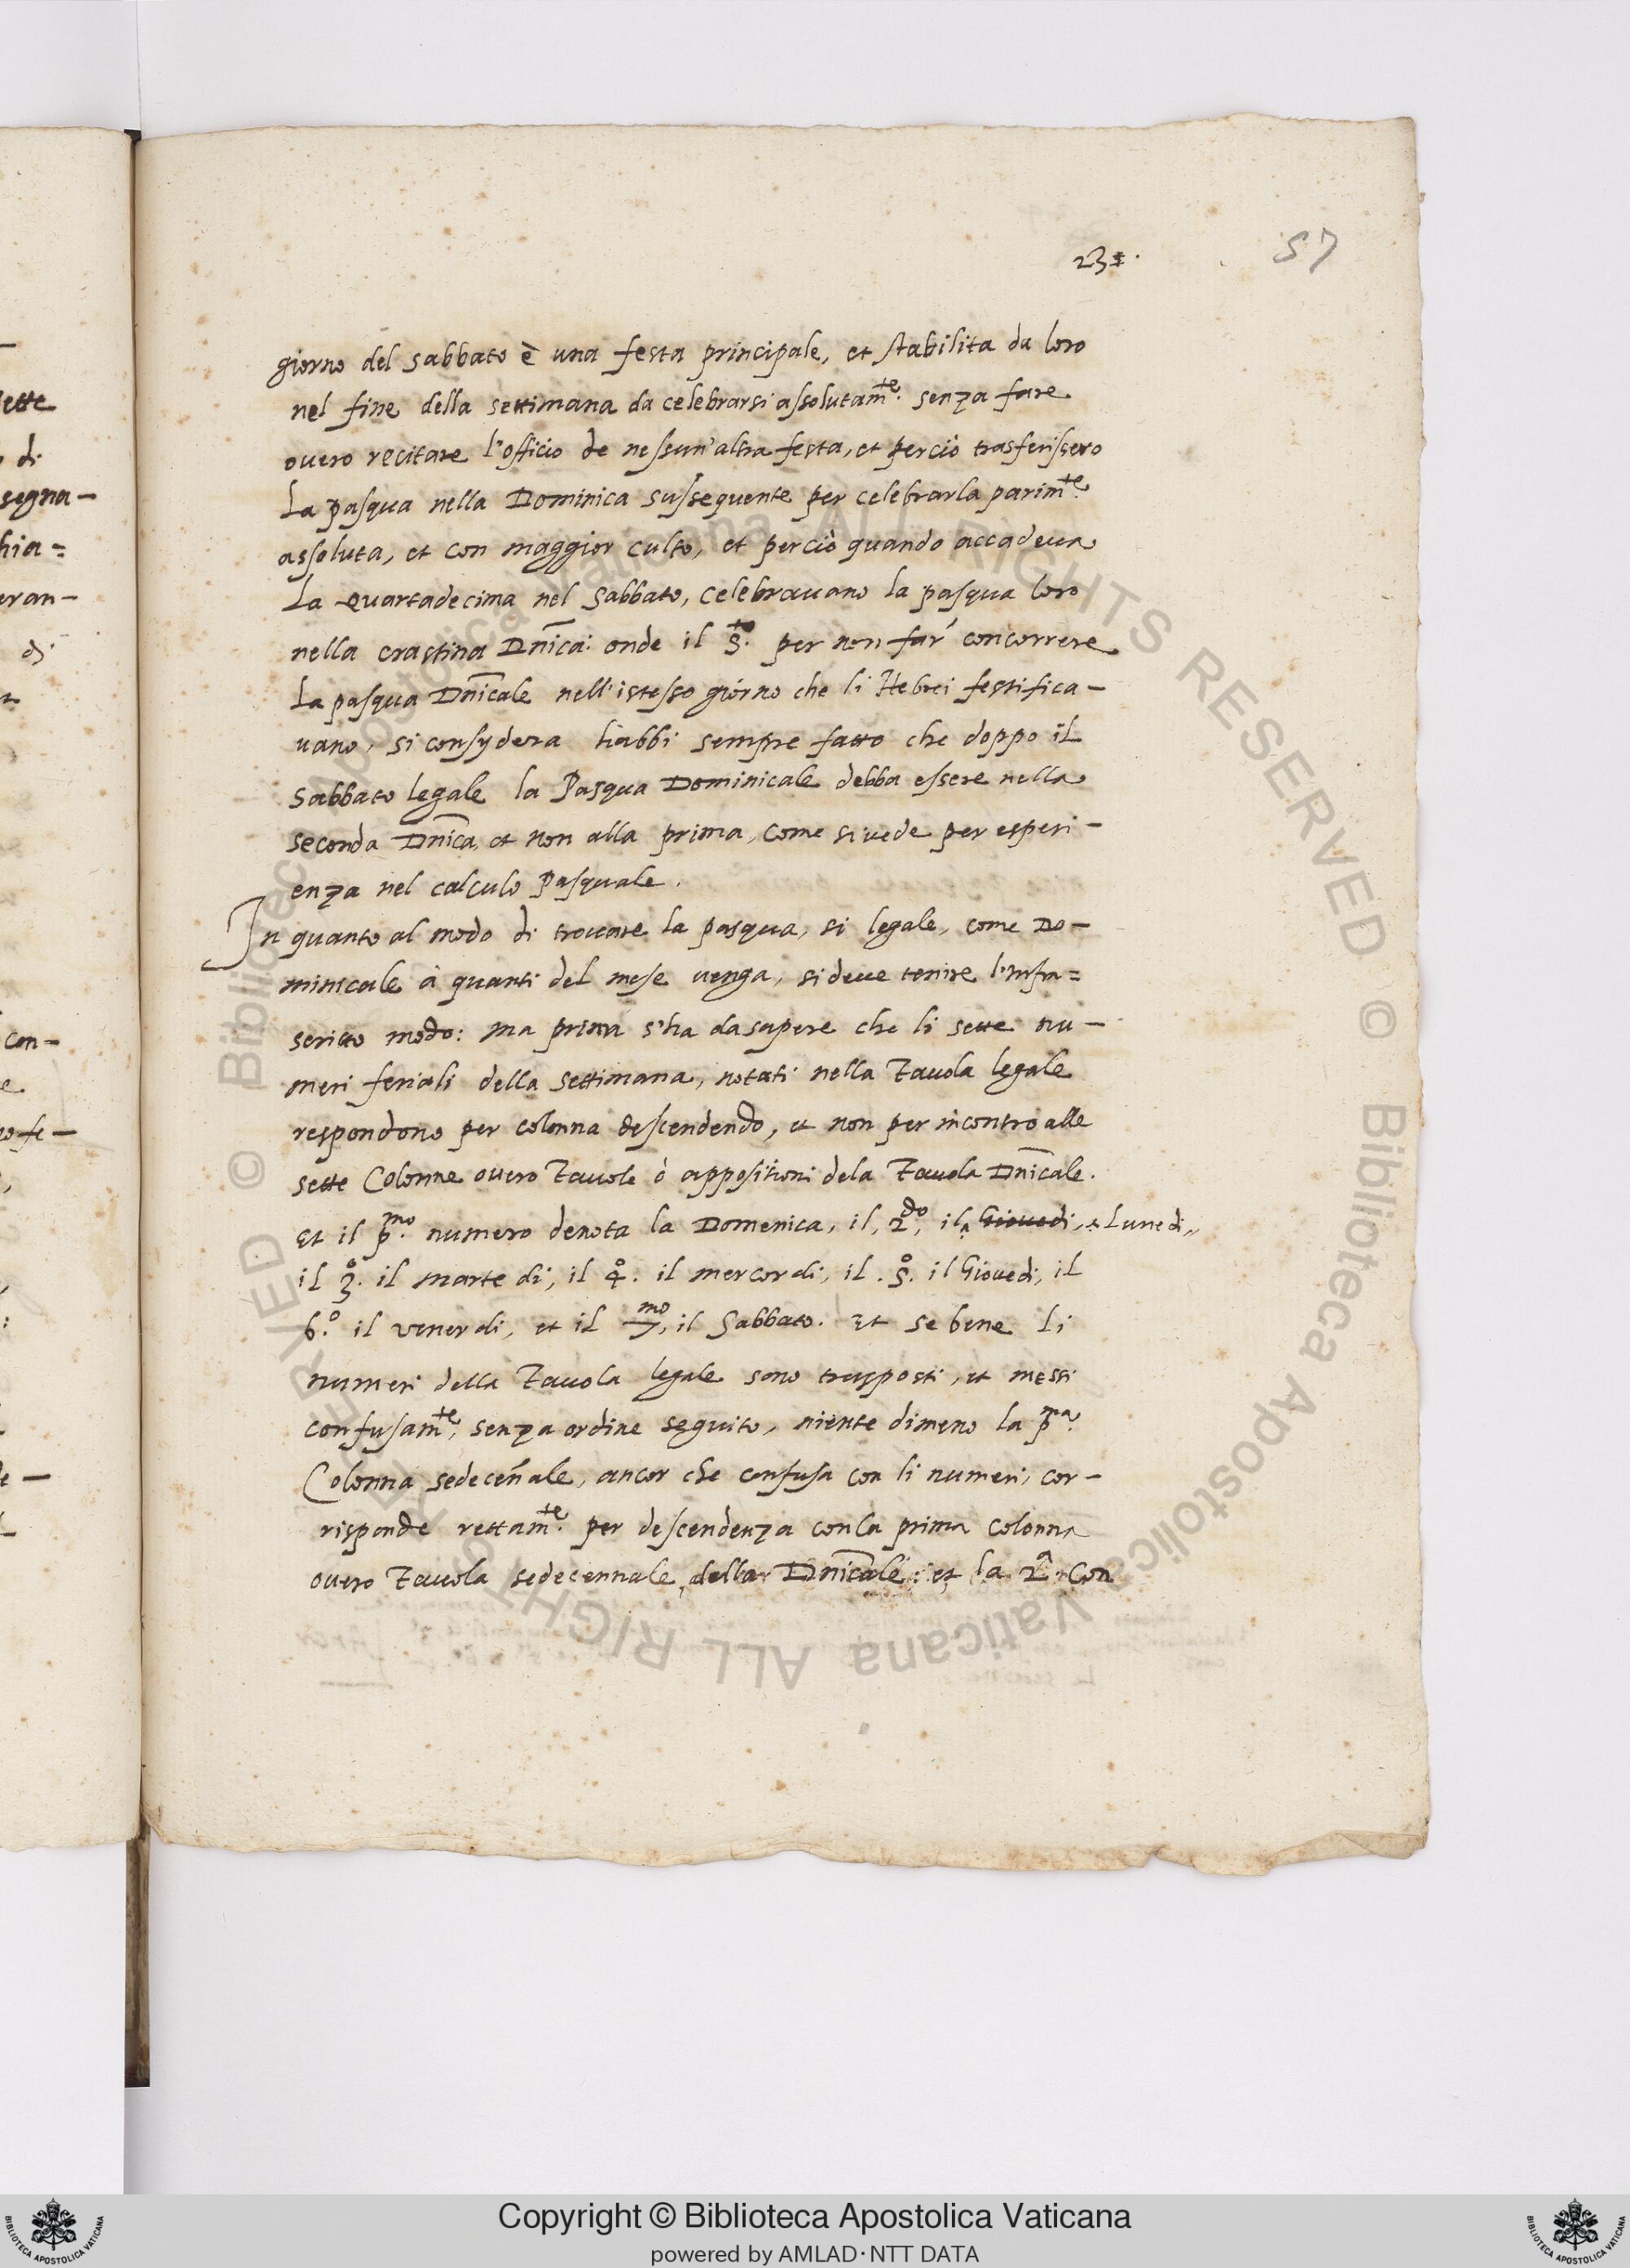 231.
57
giorno del sabbato è una festa principale, et stabilita da loro
nel fine della settimana da celebrarsi assolutam.te senza fare
overo recitare l'officio de nessun'altra festa, et perciò trasferissero
La pasqua nella Dominica sussequente per celebrarla parim.te
assoluta, et con maggior culto, et perciò quando accadeua
La quartadecima nel Sabbato, celebrauano la pasqua loro
nella crastina Dnica: onde il S.to per non far' concorrere
La pasqua Dnicale nell'istesso giorno che li Hebrei festifica-
uano, si consydera habbi sempre fatto che doppo il
Sabbato legale la Pasqua Dominicale debba essere nella
seconda Dnica, et non alla prima, come si uede per esperi-
enza nel calculo Pasquale.
In quanto al modo di trouare la pasqua, si legale, come Do-
minicale à quanti del mese uenga, si deue tenire l'infra=
scritto modo: ma prima s'ha da sapere che li sette nu-
meri feriali della settimana, notati nella Tauola legale
respondono per colonna descendendo, et non per incontro alle
sette Colonne overo Tauole ò appositioni dela Tauola Dnicale.
Et il p.mo numero denota la Domenica, il 2.do, il Giovedi, Lunedi,
il 3.o il Martedi, il 4.o il mercordi, il 5.o il Giovedi, il
6.o il venerdi, et il 7.mo, il Sabbato. Et se bene li
numeri della Tauola legale sono trasposti, et messi
confusam.te, senza ordine seguito, niente dimeno la p.ma
Colonna sedecennale, ancor che confusa con li numeri, cor-
risponde rettam.te per descendenza con la prima colonna
overo Tauola sedecennale della Dnicale: et la 2.a con
ette
di
segna-
hia=
eran-
di
con-
e